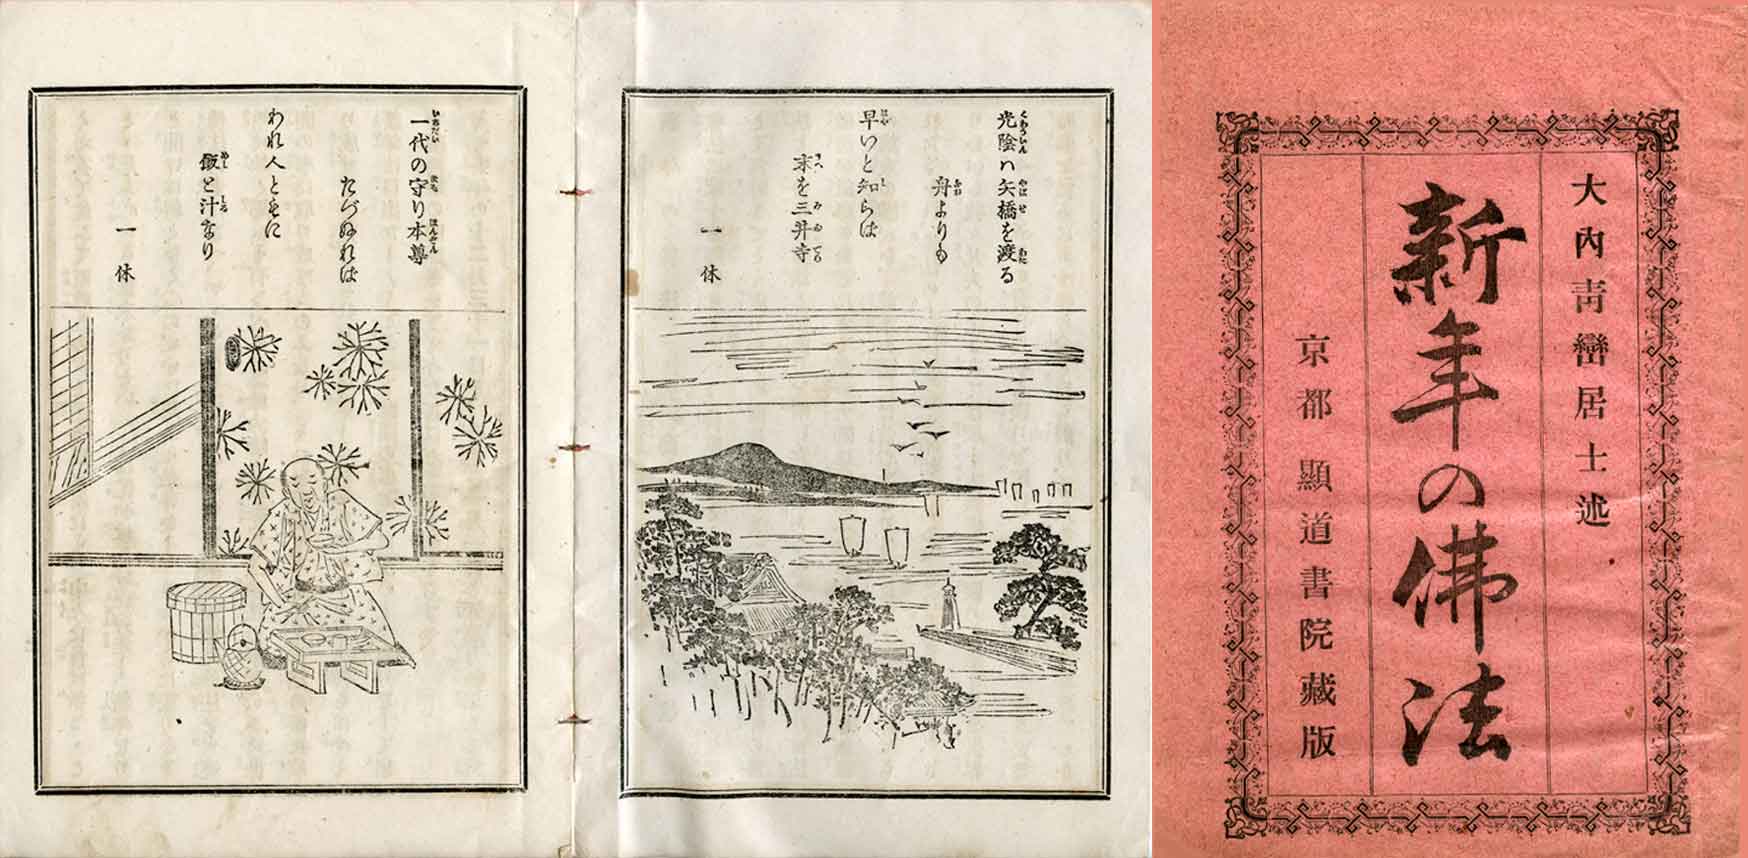 大內靑巒居士述
新年の佛法
京都 顯道書院藏版
光陰ハ矢橋を渡る
舟よりも
早いと知らは
末を三井寺
一休
一代の守り本尊
たづぬれは
われ人ともに
飯と汁なり
一休